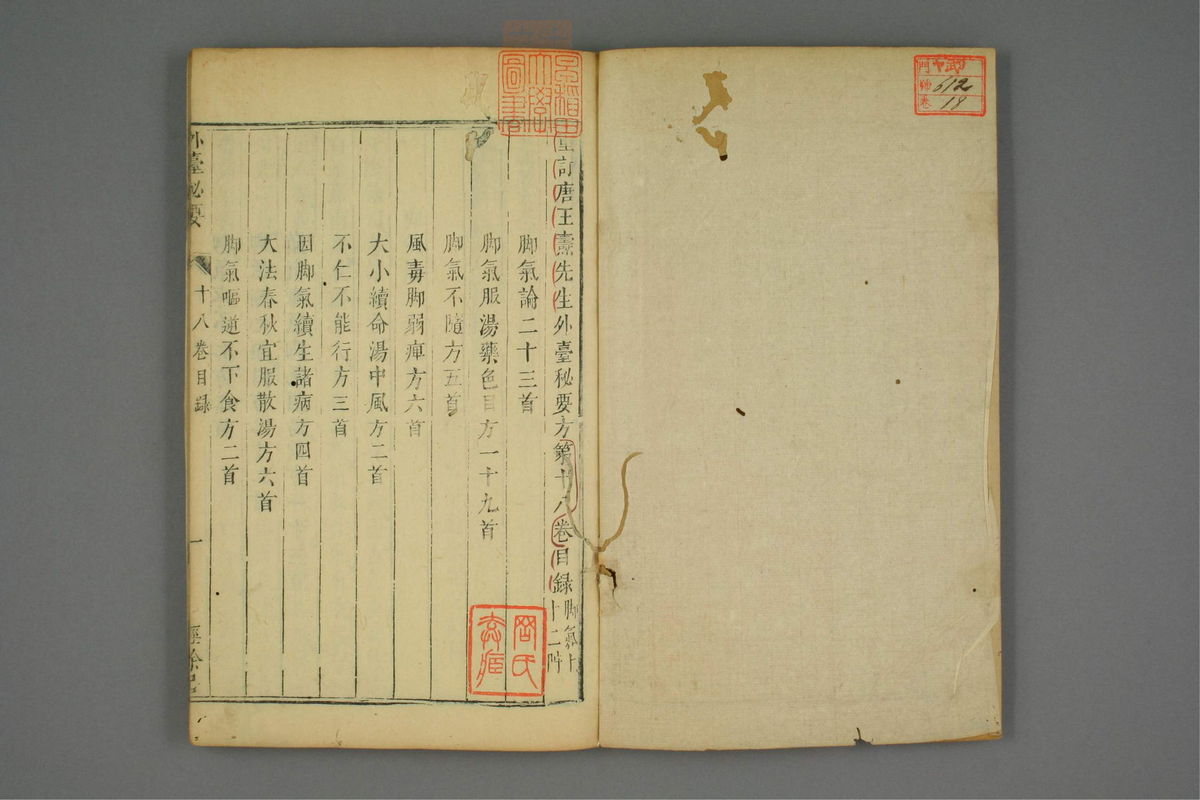 門 ヤ09
號 612
卷 19
早稲田大學圖書
重訂唐王燾先生外臺秘要方第十八卷目録 脚氣上
十二門
脚氣論二十三首
脚氣服湯藥色目方一十九首
脚氣不隨方五首
風毒脚弱痺方六首
大小續命湯中風方二首
不仁不能行方三首
因脚氣續生諸病方四首
大法春秋宜服散湯方六首
脚氣嘔逆不下食方二首
外臺秘要 十八卷目録 一 經餘居